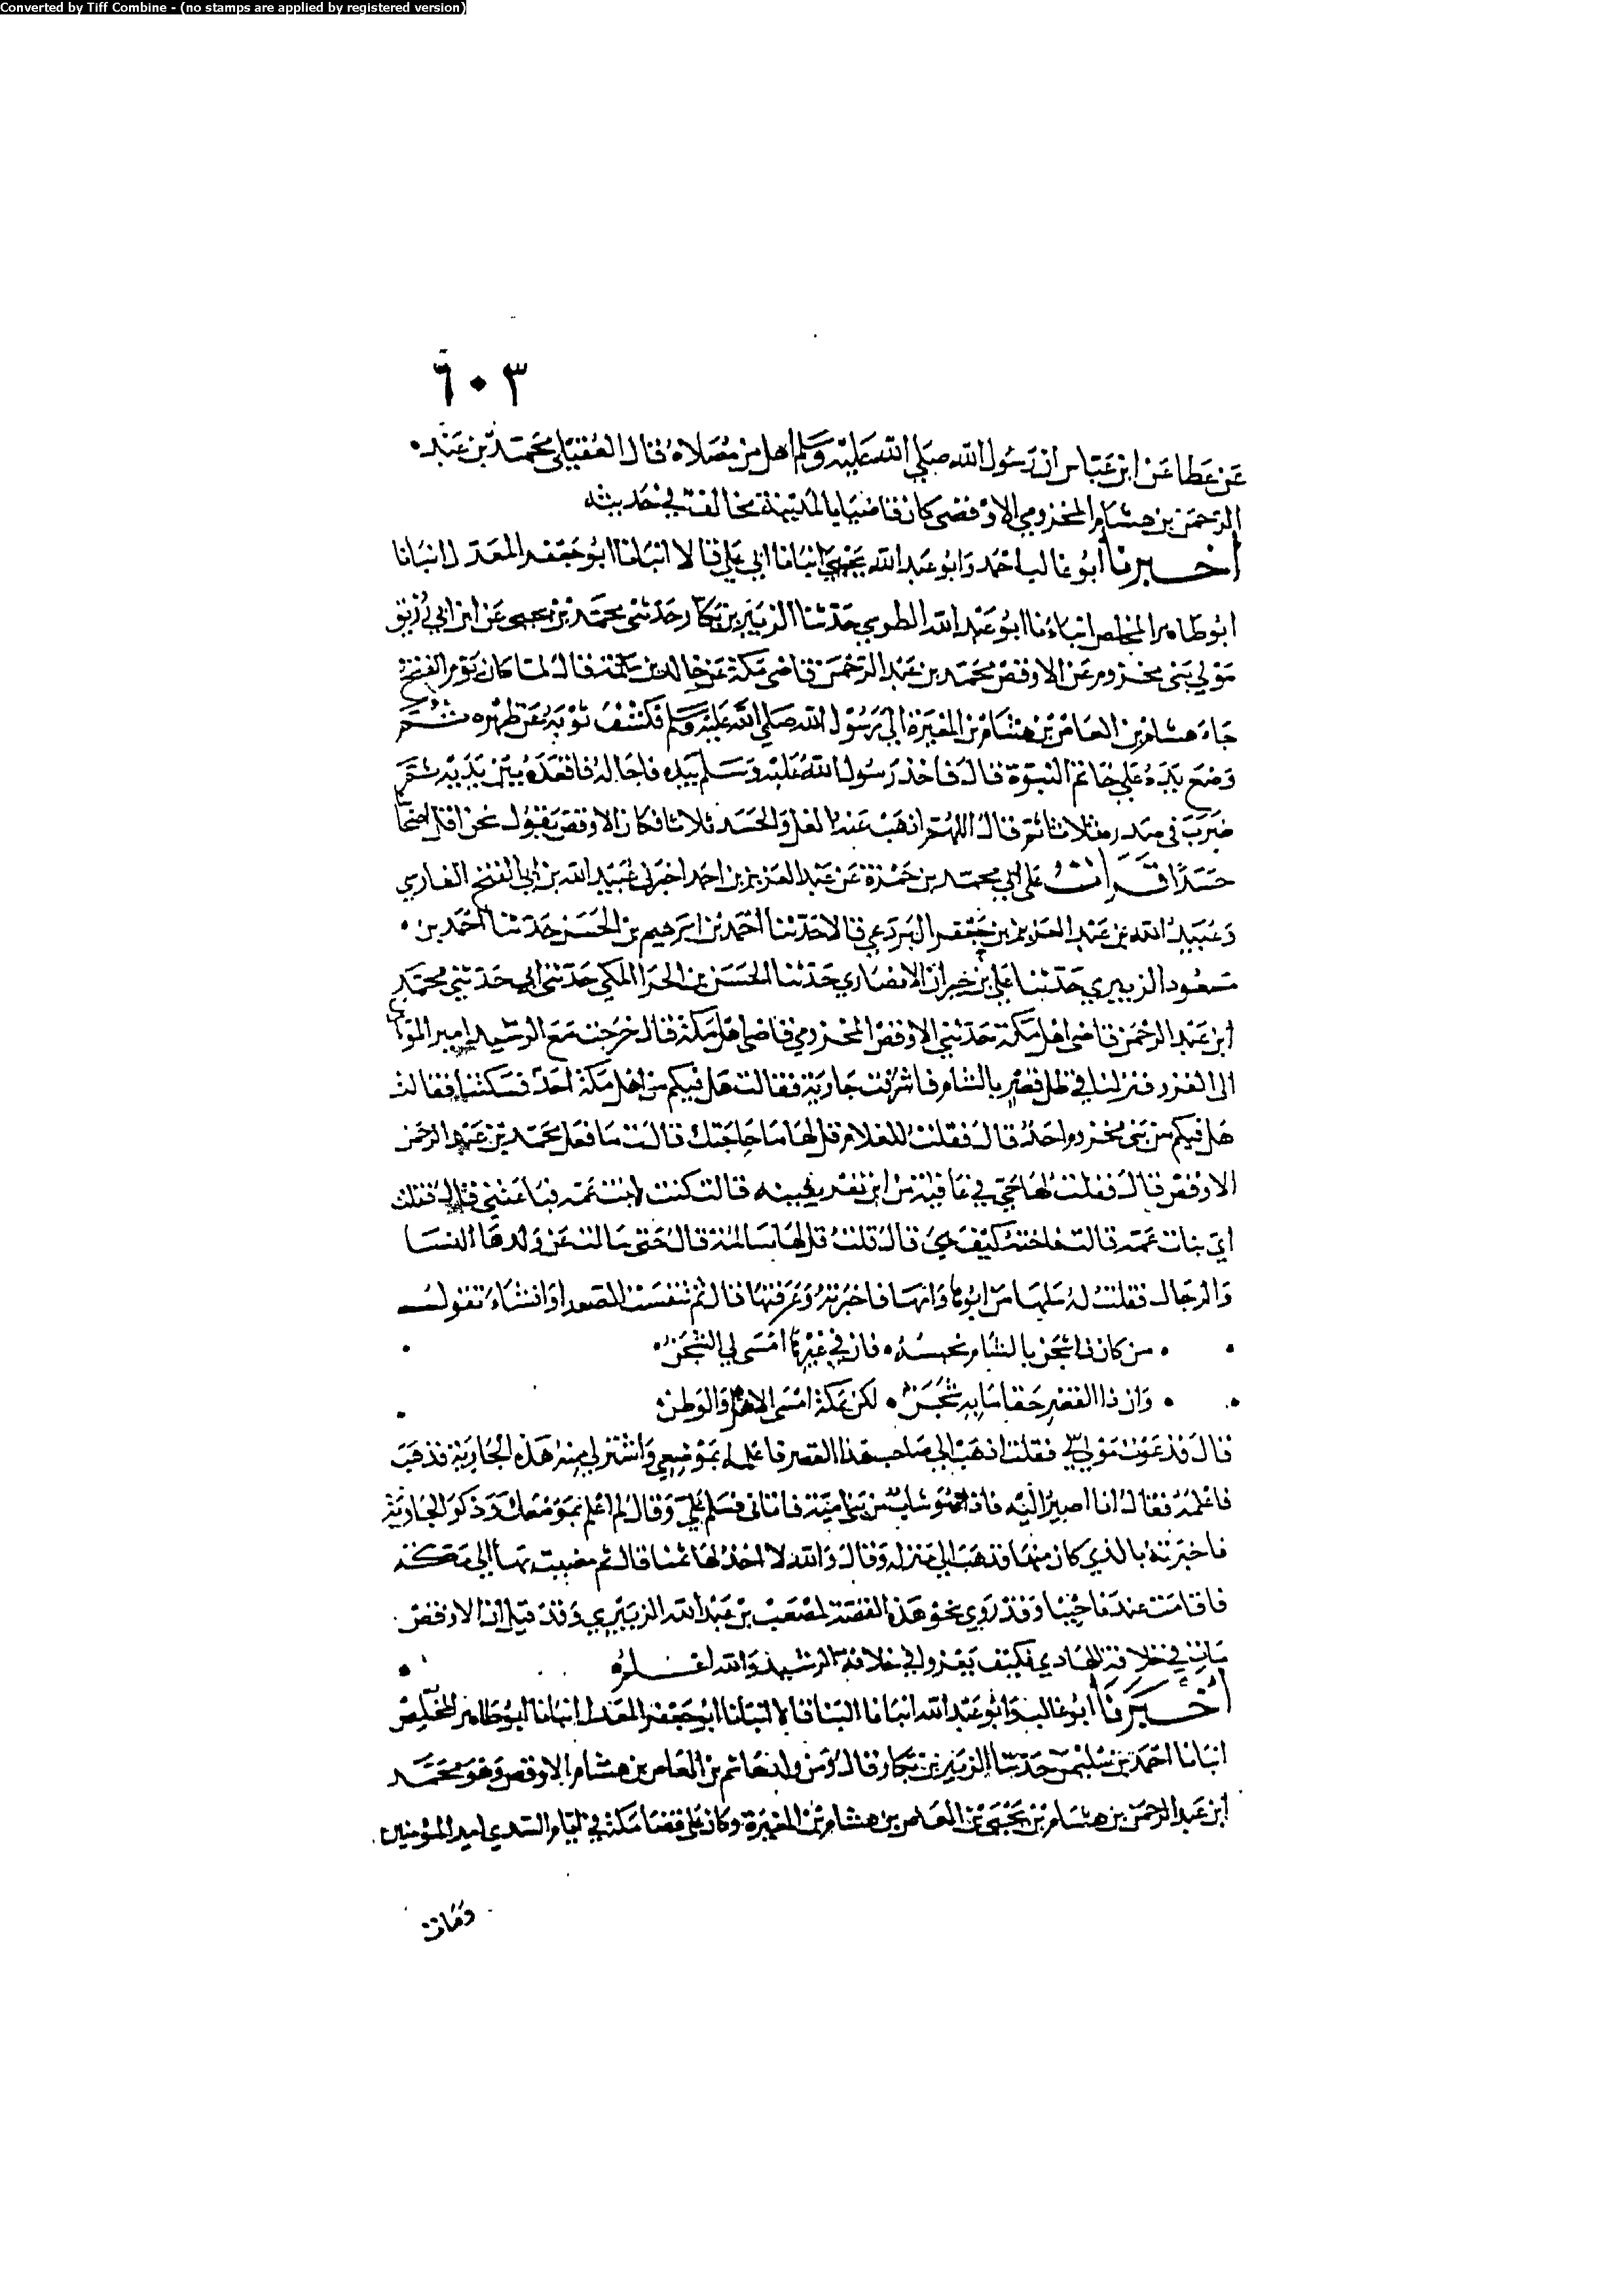 Converted by Tiff Combine - (no stamps are applied by registered version)
٦٠٣
عن عطا عن ابن عباس ان رسول الله صلي الله عليه وسلم اهل من مصلاه قال العقيلي محمد بن عبد
الرحمن بن هشام المخزومي الاوقصي كان قاضيا بالمدينة يخالف في حديثه
أخبرنا أبو غالب احمد وابو عبد الله يحيى انبانا ابي علي قالا انبانا ابو جعفر المعدل انبانا
ابو طاهر المخلص انبانا ابو عبد الله الطوسي حدثنا الزبير بن بكار حدثني محمد بن يحيى عن ابن ابي زريق
مولي بني مخزوم عن الاوقص محمد بن عبد الرحمن قاضي مكة عن خالد بن سلمة قال لما كان يوم الفتح
جاء هشام بن العاص بن هشام بن المغيرة الي رسول الله صلي الله عليه وسلم فكشف ثوبه عن ظهره ثم
وضع يده علي خاتم النبوة قال فاخذ رسول الله عليه وسلم بيده فاجاله فاقعده بين يديه ثم
ضرب في صدره ثلاثا ثم قال اللهم اذهب عنه الغل والحسد ثلاثا فكان الاوقص يقول نحن اقل اصحابنا
حسدا قرات على ابي محمد بن حمزة عن عبد العزيز بن احمد اخبرني عبيد الله بن ابي الفتح الفارسي
وعبيد الله بن عبد العزيز بن جعفر البردعي قالا حدثنا احمد بن ابرهيم بن الحسن حدثنا احمد بن
مسعود الزبيري حدثنا علي بن خيران الانصاري حدثنا الحسن بن الحر المكي حدثني ابي حدثني محمد
ابن عبد الرحمن قاضي اهل مكة حدثني الاوقص المخزومي قاضي اهل مكة قال خرجت مع الرشيد امير المومنين
الى الغزو فنزلنا في ظل قصر بالشام فاشرفت جارية فقالت هل فيكم من اهل مكة احد فسكتنا فقالت
هل فيكم من بني مخزوم احد قال فقلت للغلام قل لها ما حاجتك قالت ما فعل محمد بن عبد الرحمن
الاوقص قال فقلت لها حي في عافية من اين تعرفينه قالت كنت لابنت عمه فباعتني قال قلت
اي بنات عمه قالت فاختة كيف هي قال قلت قل لها سالمة قال حتى سالت عن ولدها النسا
والرجال فقلت له سلها من ابوها وانها فاخبرته وعرفتها قال ثم تنفست الصعدا وانشاء تقول
من كان ذا شجن بالشام يحبسه فان في غيرها امسى لي الشجن
وان ذا القصر حقا ما به شجن لكن بمكة امسى الاهل والوطن
قال فدعوت مولي لي فقلت اذهب الي صاحب هذا القصر فاعلمه بموضعي واشتر لي منه هذه الجارية فذهب
فاعلمه فقال انا اصير اليه فاذا هو شاب من بني امية فاتاني فسلم علي وقال لم اعلم بموضعك وذكر الجارية
فاخبرته بالذي كان منها فذهب الي منزله وقال والله لا اخذ لها ثمنا قال ثم مضيت بها الي مكة
فاقامت عندنا حينا وقد روي نحو هذه القصة لمصعب بن عبد الله الزبيري وقد قيل ان الاوقص
مات في خلافة الهادي فكيف يغزو في خلافة الرشيد والله اعلم
أخبرنا أبو غالب وابو عبد الله انبانا البنا قالا انبانا ابو جعفر المعدل انبانا ابو طاهر المخلص
انبانا احمد بن سليمن حدثنا الزبير بن بكار قال ومن ولد هاشم بن العاص بن هشام الاوقص وهو محمد
ابن عبد الرحمن بن هشام بن يحيى بن العاص بن هشام بن المغيرة وكان علي قضا مكة في ايام المهدي امير المؤمنين
ومات